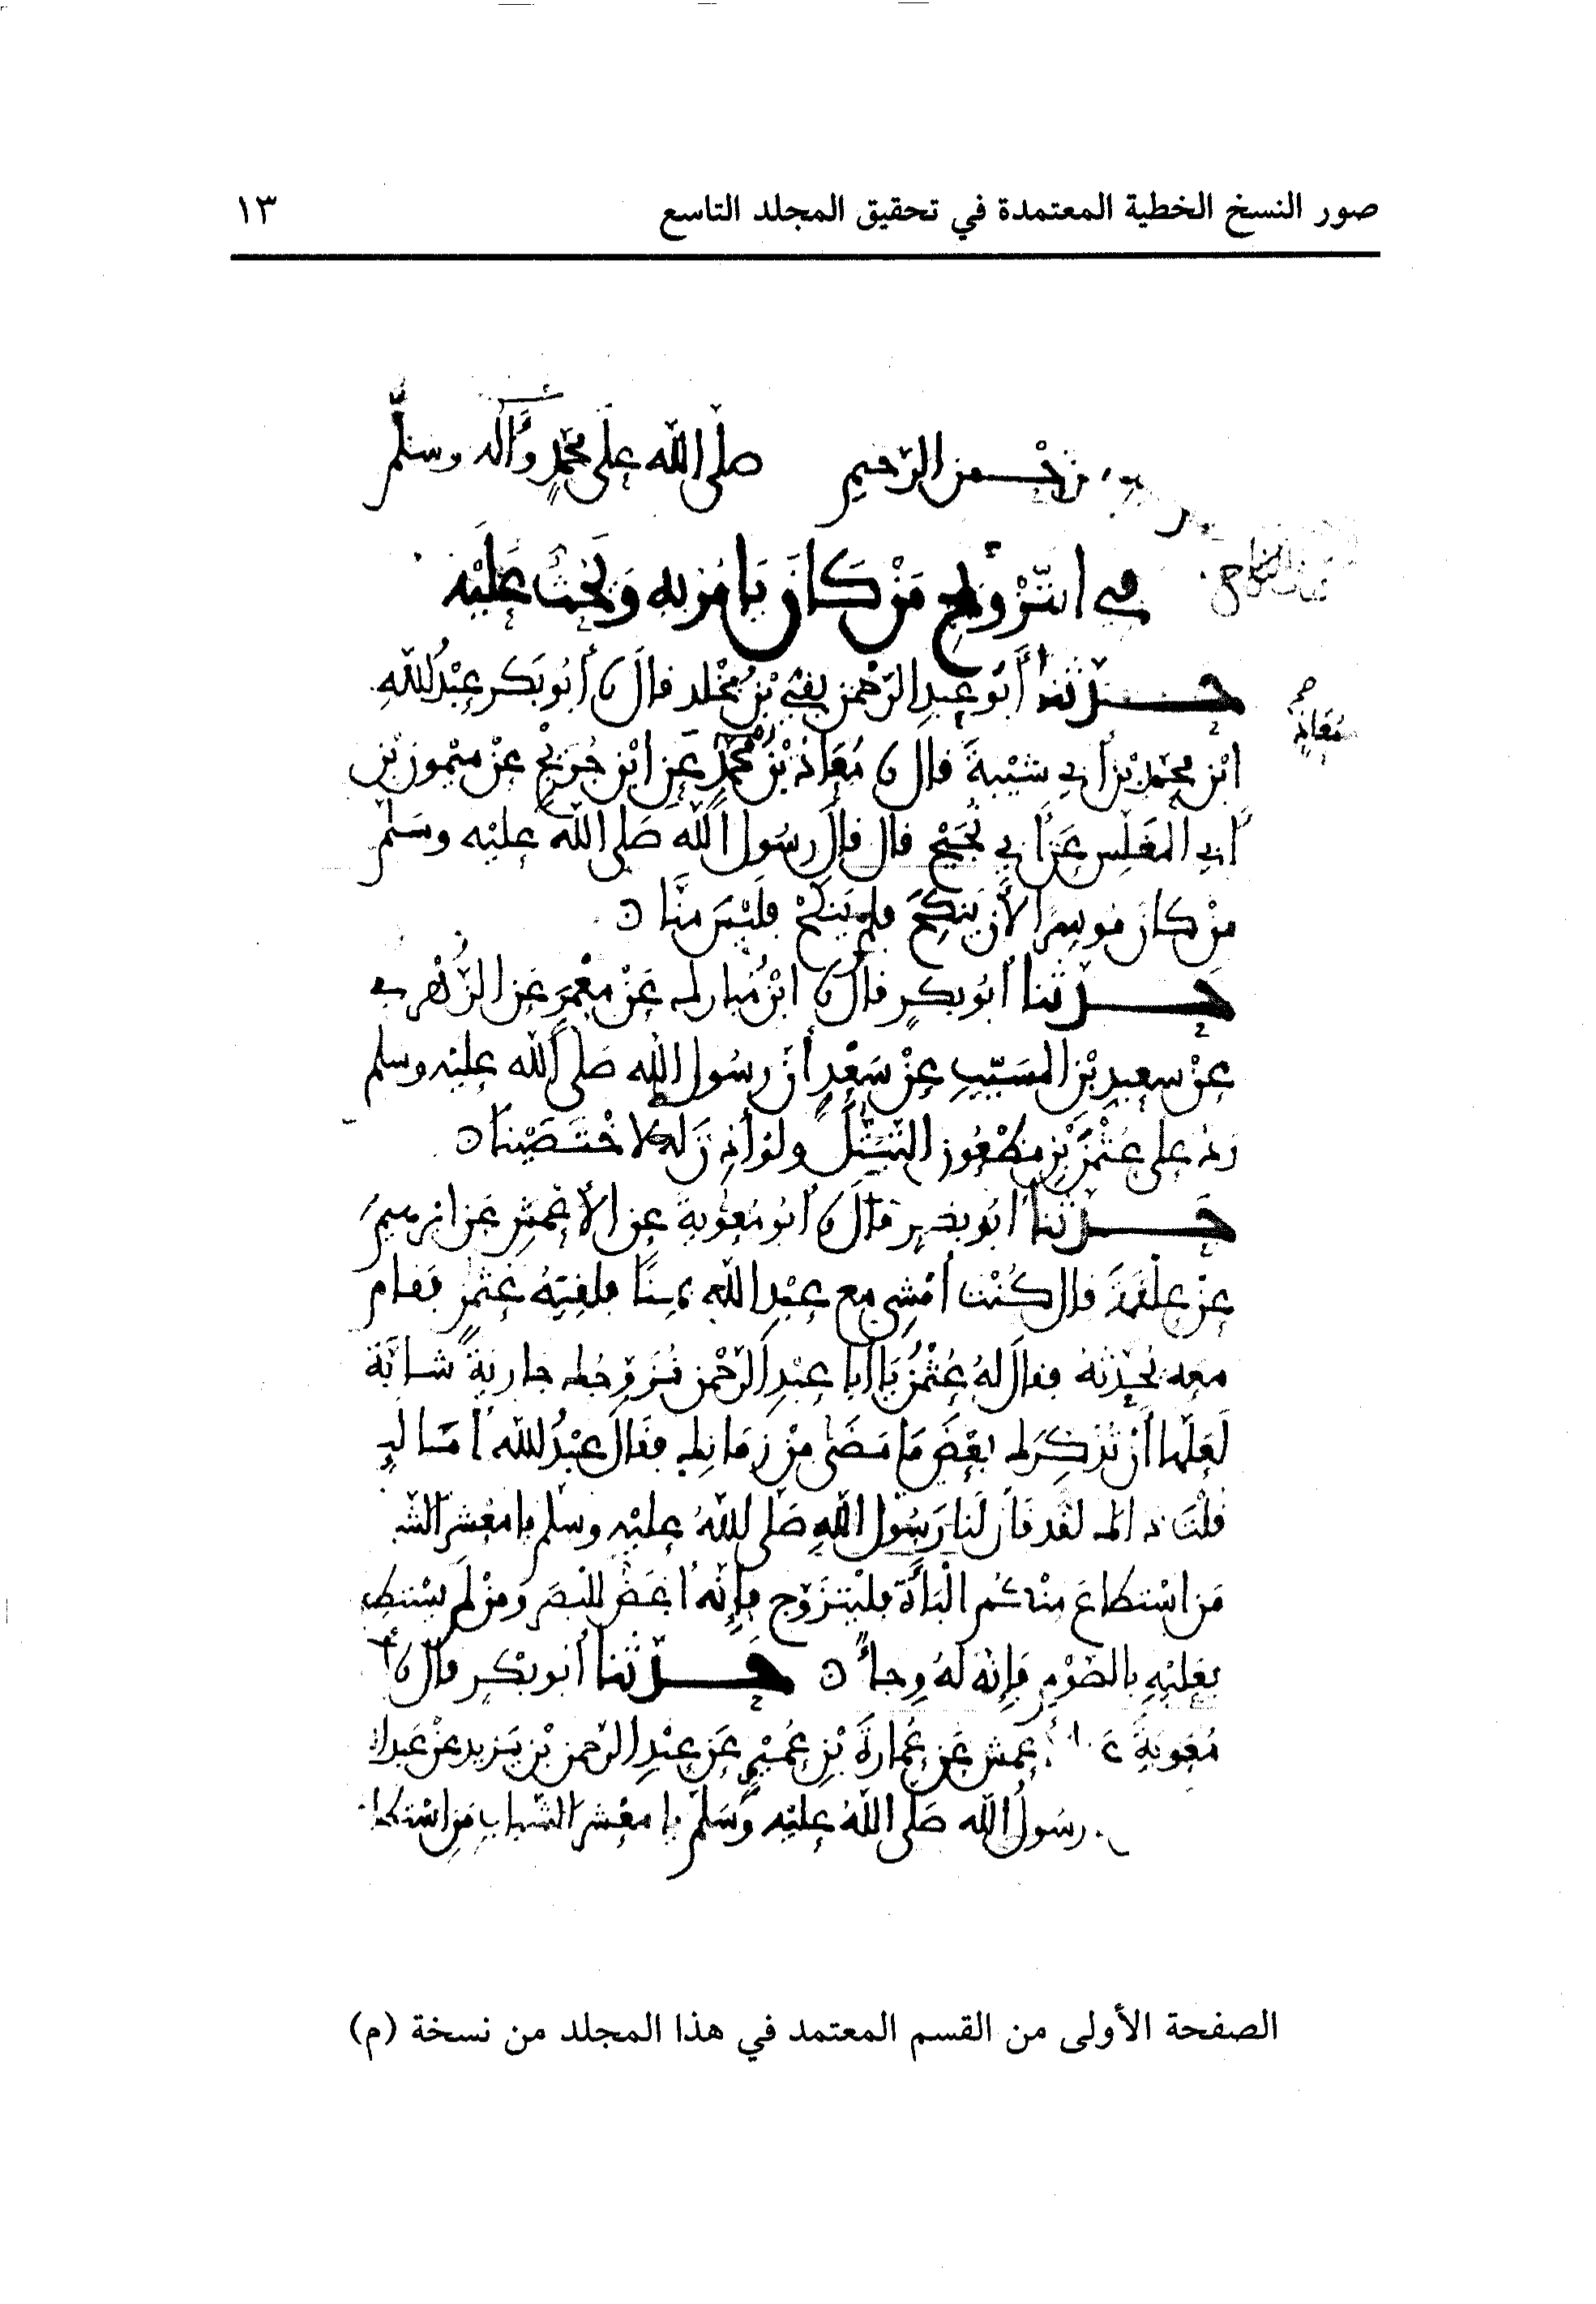 صور النسخ الخطية المعتمدة في تحقيق المجلد التاسع ١٣
الرحيم صلى الله على محمد وآله وسلم
في التزويج مَنْ كَانَ يَامُرُ بِهِ وَيَحُثُّ عَلَيْهِ
حدثنا أبو عبد الرحمن بقي بن مخلد قال نا أبو بكر عبد الله
معاذ
ابن محمد بن أبي شيبة قال نا معاذ بن محمد عن ابن جريج عن ميمون بن
أبي المغلس عن أبي نجيح قال قال رسول الله صلى الله عليه وسلم
من كان موسرا لأن ينكح فلم ينكح فليس منا
حدثنا أبو بكر قال نا ابن مبارك عن معمر عن الزهري
عن سعيد بن المسيب عن سعد أن رسول الله صلى الله عليه وسلم
رد على عثمن بن مظعون التبتل ولو أذن له لاختصينا
حدثنا أبو بكر قال نا أبو معوية عن الأعمش عن
عن علقمة قال كنت أمشي مع عبد الله بمنا فلقيه عثمن فقام
معه يحدثه فقال له عثمن يا أبا عبد الرحمن نزوجك جارية شابة
لعلها أن تذكرك بعض ما مضى من زمانك فقال عبد الله أما لين
قلت ذالك لقد قال لنا رسول الله صلى الله عليه وسلم يا معشر
من استطاع منكم الباءة فليتزوج فإنه أغض للبصر ومن لم يستطع
فعليه بالصوم فإنه له وجاء حدثنا أبو بكر قال نا
معوية عمش عن عمارة بن عمير عن عبد الرحمن بن يزيد عن
رسول الله صلى الله عليه وسلم يا معشر الشباب من
الصفحة الأولى من القسم المعتمد في هذا المجلد من نسخة (م)